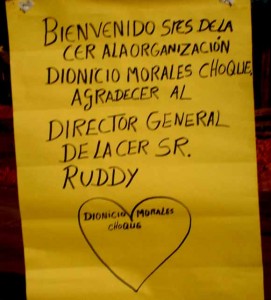 BIENVENIDO SRES DE LA
CER A LA ORGANIZACIÓN
DIONICIO MORALES CHOQUE,
AGRADECER AL
DIRECTOR GENERAL
DE LA CER SR.
RUDDY
DIONICIO MORALES
CHOQUE